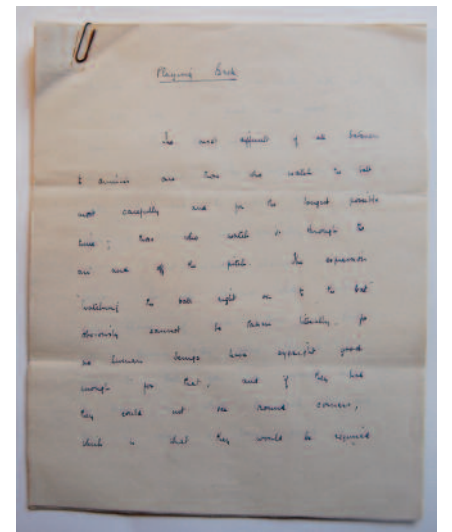 Playing Back
The most difficult of all batsmen
to dismiss are those who watch the ball
most carefully and for the longest possible
time; those who watch it through the
air and off the pitch. The expression
'watching the ball right on to the bat'
obviously cannot be taken literally, for
no human beings have eyesight good
enough for that, and if they had
they could not see round corners,
which is what they would be required